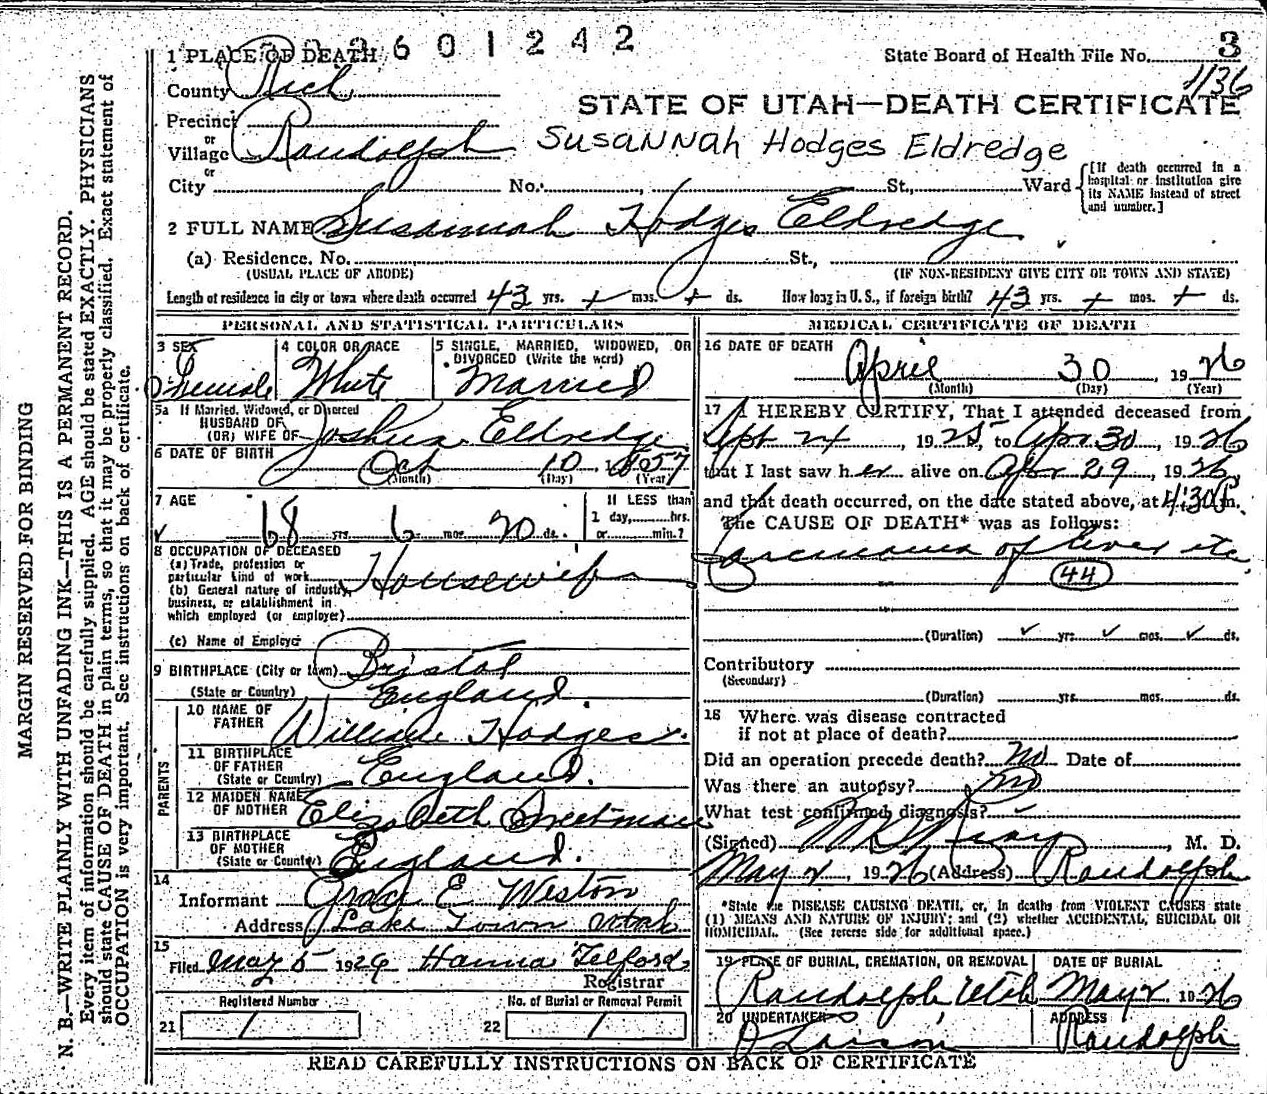 2601242
1 PLACE OF DEATH
State Board of Health File No. 3
1136
County Rich
STATE OF UTAH—DEATH CERTIFICATE
Precinct
or
Village Randolph
Susannah Hodges Eldredge
or
City No. St., Ward
[If death occurred in a hospital or institution give its NAME instead of street and number.]
2 FULL NAME Susannah Hodges Eldredge
(a) Residence, No. St.,
(USUAL PLACE OF ABODE) (IF NON-RESIDENT GIVE CITY OR TOWN AND STATE)
Length of residence in city or town where death occurred 43 yrs. + mos. + ds. How long in U. S., if foreign birth? 43 yrs. + mos. + ds.
PERSONAL AND STATISTICAL PARTICULARS
3 SEX Female
4 COLOR OR RACE White
5 SINGLE, MARRIED, WIDOWED, OR DIVORCED (Write the word) Married
5a If Married, Widowed, or Divorced
HUSBAND OF
(OR) WIFE OF Joshua Eldredge
6 DATE OF BIRTH Oct 10 1857
(Month) (Day) (Year)
7 AGE 68 yrs. 6 mos. 20 ds.
If LESS than
1 day, hrs.
or min.?
8 OCCUPATION OF DECEASED
(a) Trade, profession or
particular kind of work Housewife
(b) General nature of industry,
business, or establishment in
which employed (or employer)
(c) Name of Employer
9 BIRTHPLACE (City or town) Bristol
(State or Country) England
PARENTS
10 NAME OF FATHER William Hodges.
11 BIRTHPLACE OF FATHER
(State or Country) England.
12 MAIDEN NAME OF MOTHER Elizabeth Sweetman
13 BIRTHPLACE OF MOTHER
(State or Country) England.
14
Informant Grace E Weston
Address Lake Town Utah
15
Filed May 5 1926 Hanna Telford
Registrar
Registered Number No. of Burial or Removal Permit
21 1 22 1
MEDICAL CERTIFICATE OF DEATH
16 DATE OF DEATH
April 30, 1926
(Month) (Day) (Year)
17 I HEREBY CERTIFY, That I attended deceased from
Sept 24, 1925, to Apr 30, 1926
that I last saw her alive on Apr 29, 1926
and that death occurred, on the date stated above, at 4:30 P m.
The CAUSE OF DEATH* was as follows:
Carcinoma of liver etc
44
(Duration) yrs. mos. ds.
Contributory
(Secondary)
(Duration) yrs. mos. ds.
18 Where was disease contracted
if not at place of death?
Did an operation precede death? No Date of
Was there an autopsy? No
What test confirmed diagnosis?
(Signed) M. D.
May 2, 1926 (Address) Randolph
*State the DISEASE CAUSING DEATH, or, in deaths from VIOLENT CAUSES state
(1) MEANS AND NATURE OF INJURY; and (2) whether ACCIDENTAL, SUICIDAL OR
HOMICIDAL. (See reverse side for additional space.)
19 PLACE OF BURIAL, CREMATION, OR REMOVAL DATE OF BURIAL
Randolph Utah May 2 1926
20 UNDERTAKER ADDRESS
Larson Randolph
READ CAREFULLY INSTRUCTIONS ON BACK OF CERTIFICATE
MARGIN RESERVED FOR BINDING
N. B.—WRITE PLAINLY WITH UNFADING INK—THIS IS A PERMANENT RECORD.
Every item of information should be carefully supplied. AGE should be stated EXACTLY. PHYSICIANS
should state CAUSE OF DEATH in plain terms, so that it may be properly classified. Exact statement of
OCCUPATION is very important. See instructions on back of certificate.